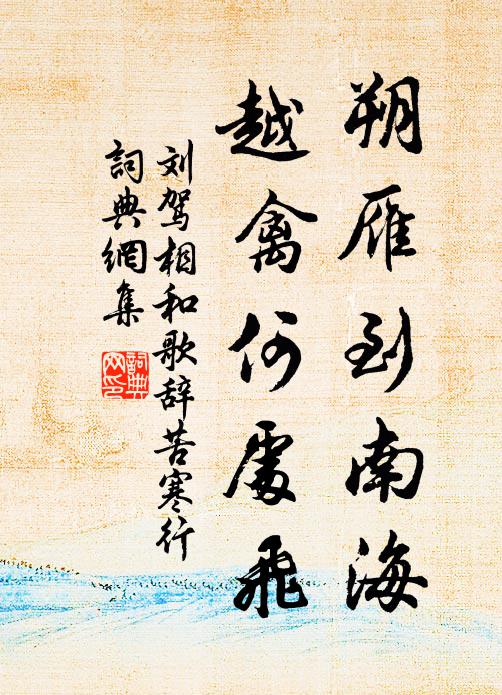 朔雁到南海
越禽何處飛
刘驾相和歌辞苦寒行
詞典網集
詞典网印